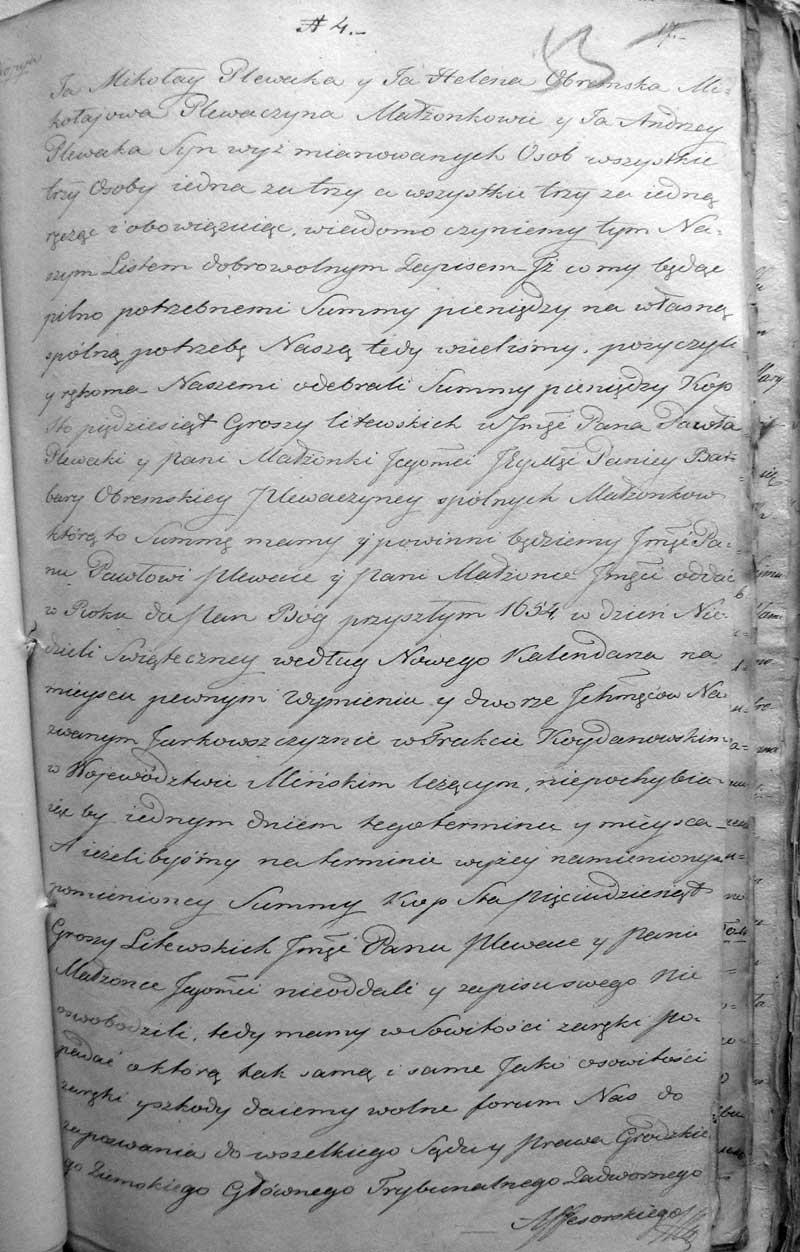 № 4.-
53
17.-
Ja Mikołay Plewaka y Ja Helena Obremska Mi-
kołajowa Plewaczyna Małżonkowie y Ja Andrzey
Plewaka Syn wyż mianowanych Osob wszystkie
trzy Osoby iedna za trzy a wszystkie trzy za iedną
ręcząc i obowięzuiąc, wiadomo czyniemy tym Na-
szym Listem dobrowolnym Zapisem Jż co my będąc
pilno potrzebnemi Summy pieniędzy na własną
spólną potrzebę Naszą tedy wzieliśmy, pożyczyli
y rękoma Naszemi odebrali Summy pieniędzy Kop
sto pędziesiąt Groszy litewskich u Jmći Pana Pawła
Plewaki y pani Małżonki Jegomći Jey Mći Paniey Bar-
bary Obremskiey Plewaczyney spólnych Małżonkow
którą to Summę mamy y powinni będziemy Jmći Pa-
nu Pawłowi Plewace y pani Małżonce Jmći oddać
w Roku da Pan Bóg przyszłym 1654 w dzień Nie-
dzieli Swiąteczney według Nowego Kalendarza na
mieyscu pewnym Wymieniu y dworze Jchmęćow Na-
zwanym Jurkowszczyznie w Trakcie Koydanowskim
w Województwie Mińskim leżącym, niepochybia-
iąc by iednym dniem tego terminu y mieysca_
A ieżelibyśmy na terminie wyżey namienionym
pomienioney Summy Kop Sta Pięciudziesiąt
Groszy Litewskich Jmći Panu Plewace y Pani
Małżonce Jegomći nieoddali y zapisu swego nie
oswobodzili, tedy mamy w Sowitości zaręki po-
padać o którą tak samą i same Jako o sowitości
zaręki y szkody daiemy wolne forum Nas do
zapozwania do wszelkiego Sądu y prawa Grodzkie-
go Ziemskiego Głównego Trybunalnego Zadwornego
Assesorskiego